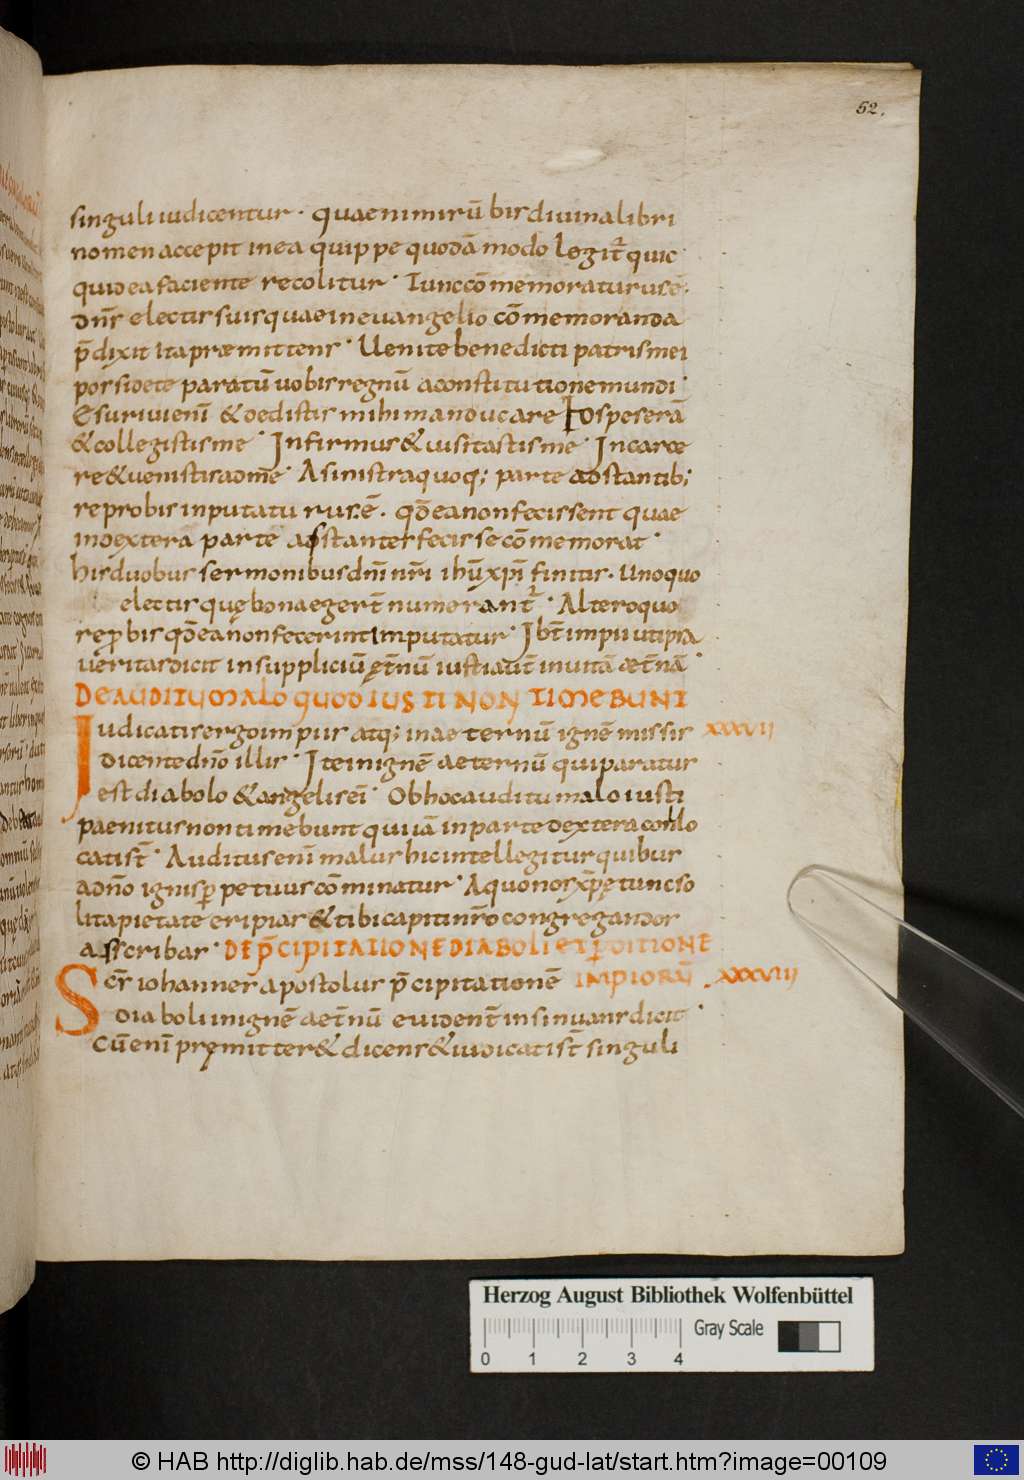 52.
singuli iudicentur · quae nimirū bis diuina libri
nomen accepit in ea quippe quodā modo legit̄ quic
quid ea faciente recolitur · Tunc cōmemoraturus ē·
dn̄s electis suis quae in euangelio cōmemoranda
p̄dixit ita præmittens · Uenite benedicti patris mei
possidete paratū uobis regnū a constitutione mundi ·
Esuriui enī & dedistis mihi manducare Hospes erā
& collegistis me · Infirmus & uisitastis me · In carce
re & uenistis ad me · A sinistra quoq; parte adstantib;
reprobis inputaturus ē · qd̄ ea non fecissent quae
in dextera parte astantes fecisse cōmemorat ·
his duobus sermonibus dn̄i nr̄i ihū xp̄i finitis · Uno quo
electis quę bona egert̄ numerant̄ · Altero quo
rep̄bis qd̄ ea non fecerint imputatur · Ibt̄ impii uti ipsa
ueritas dicit in suppliciū ęt̄nū iusti aut̄ in uitā æt̄nā ·
DE AUDITU MALO QUOD IUSTI NON TIMEBUNT
Iudicatis ergo impiis atq; in aeternū ignē missis XXXVII
dicente dn̄o illis · Ite in ignē aeternū qui paratus
est diabolo & angelis eī · Ob hoc auditu malo iusti
paenitus non timebunt qui iā in parte dextera conlo
cati st̄ · Auditus enī malus hic intellegitur quibus
a dn̄o ignis ꝑpetuus cōminatur · A quo nos xp̄ę tunc so
lita pietate eripias & tibi capiti nr̄o congregandos
asscribas · DE P̄CIPITATIONE DIABOLI ET ꝐDITIONE
Scs̄ iohannes apostolus p̄cipitationē IMPIORŪ · XXXVIII
diaboli in ignē aet̄nū euident̄ insinuans dicit ·
Cū enī pręmitter& dicens & iudicati st̄ singuli
Herzog August Bibliothek Wolfenbüttel
Gray Scale
0 1 2 3 4
© HAB http://diglib.hab.de/mss/148-gud-lat/start.htm?image=00109